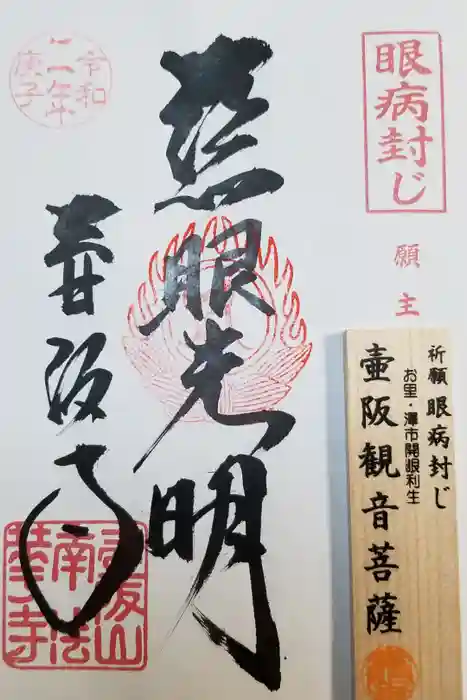 眼病封じ
願主
慈眼
光明
壷阪寺
令和
二年
庚子
壷阪山
南法
華寺
祈願 眼病封じ
お里・澤市開眼利生
壷阪観音菩薩